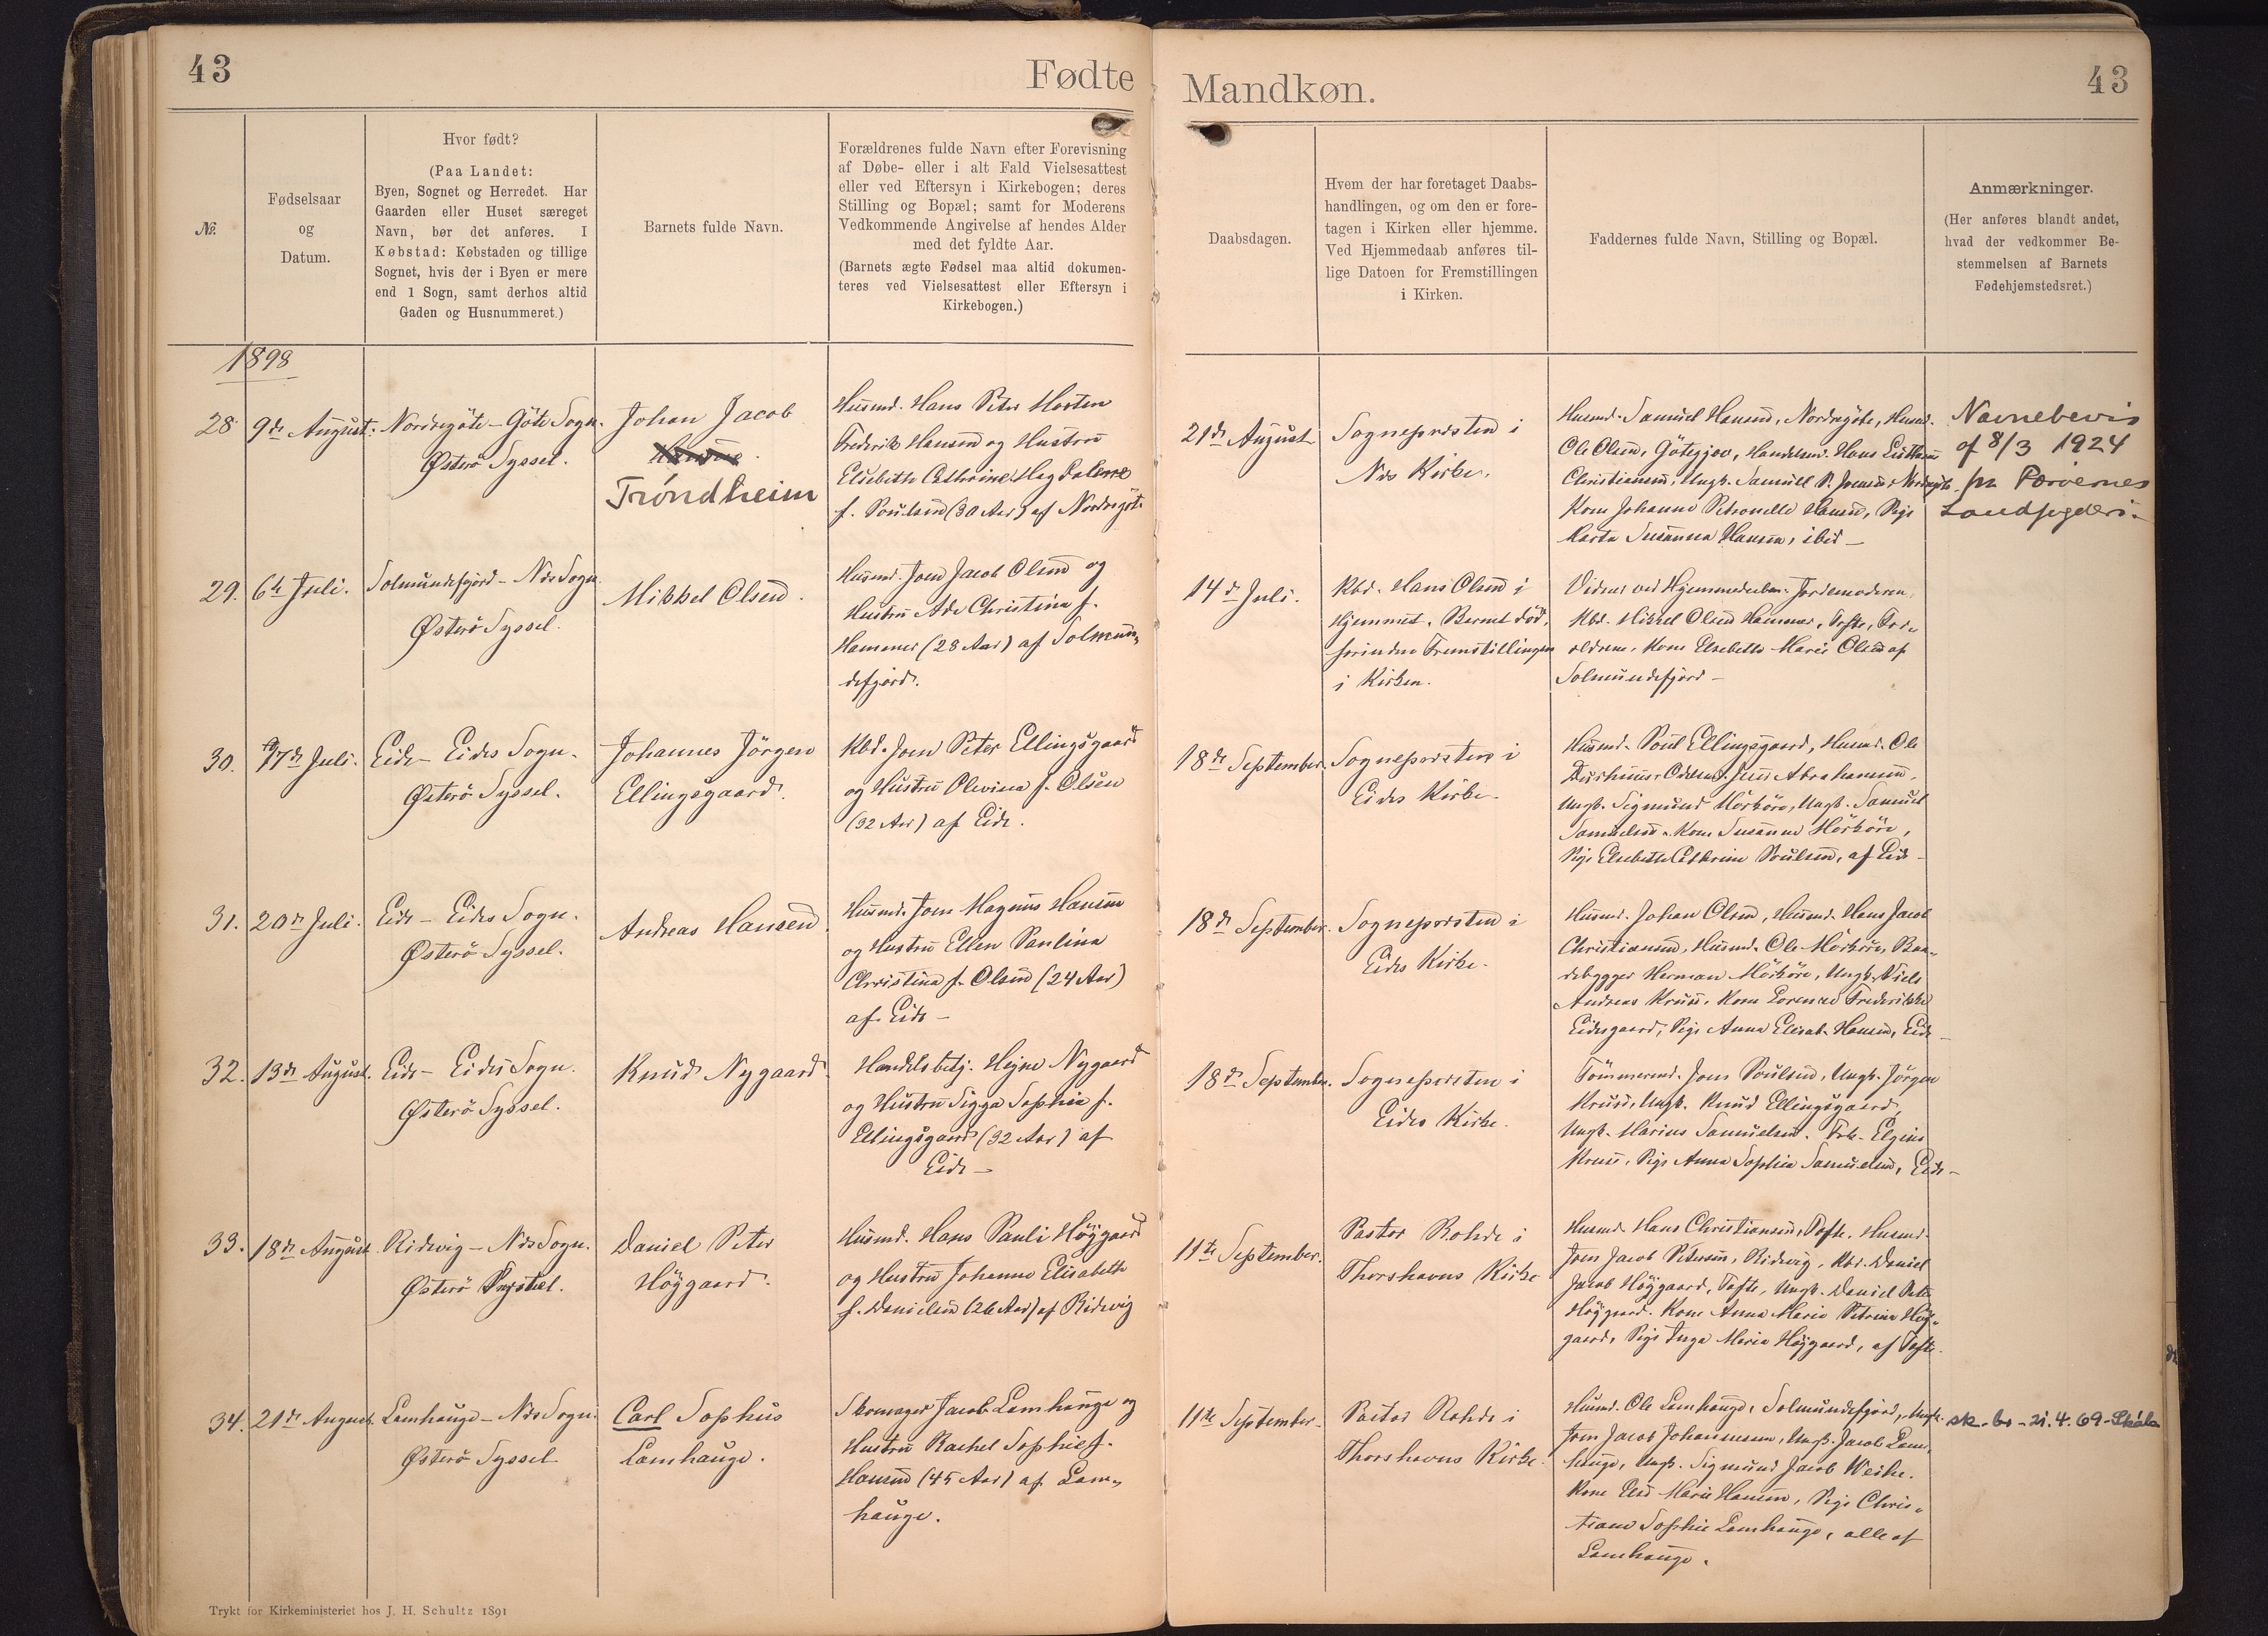 43
Fødte
Mandkøn.
43
№.
Fødselsaar
og
Datum.
Hvor født?
(Paa Landet:
Byen, Sognet og Herredet. Har
Gaarden eller Huset særeget
Navn, bør det anføres. I
Købstad: Købstaden og tillige
Sognet, hvis der i Byen er mere
end 1 Sogn, samt derhos altid
Gaden og Husnummeret.)
Barnets fulde Navn.
Forældrenes fulde Navn efter Forevisning
af Døbe- eller i alt Fald Vielsesattest
eller ved Eftersyn i Kirkebogen; deres
Stilling og Bopæl; samt for Moderens
Vedkommende Angivelse af hendes Alder
med det fyldte Aar.
(Barnets ægte Fødsel maa altid dokumen-
teres ved Vielsesattest eller Eftersyn i
Kirkebogen.)
Daabsdagen.
Hvem der har foretaget Daabs-
handlingen, og om den er fore-
tagen i Kirken eller hjemme.
Ved Hjemmedaab anføres til-
lige Datoen for Fremstillingen
i Kirken.
Faddernes fulde Navn, Stilling og Bopæl.
Anmærkninger.
(Her anføres blandt andet,
hvad der vedkommer Be-
stemmelsen af Barnets
Fødehjemstedsret.)
1898
28.
9de August.
Nordregöte - Göte Sogn.
Østerö Syssel.
Johan Jacob
Tróndheim
Husmd. Hans Peter Morten
Frederik Hansen og Hustru
Elsebeth Cathrine Magdalene
f. Poulsen (30 Aar) af Nordregöte
21de August
Sognepræsten i
Nes Kirke.
Husmd. Samuel Hansen, Nordregöte, Husmd.
Ole Olsen, Götegjov, Handelsmd. Hans
Christiansen, Ungk. Samuel P. Joensen Nordregöte
Kone Johanne Petronelle Hansen, Pige
Marta Susanna Hansen, ibid -
Navnebevis
af 8/3 1924
fra Færøernes
Landfogderi.
29.
6te Juli.
Solmundefjord - Nes Sogn
Østerö Syssel.
Mikkel Olsen.
Husmd. Joen Jacob Olsen og
Hustru Ade Christina f.
Hammer (28 Aar) af Solmun-
defjord.
14de Juli.
Kbd. Hans Olsen i
Hjemmet. Barnet död,
forinden Fremstillingen
i Kirken.
Vidner ved Hjemmedaaben: Jordemoderen,
Kbd. Mikkel Olsen Hammer, Tofte, For-
ældrene, Kone Elsebeth Marie Olsen af
Solmundefjord -
30.
17de Juli.
Eide - Eides Sogn.
Østerö Syssel.
Johannes Jörgen
Ellingsgaard.
Kbd. Joen Peter Ellingsgaard
og Hustru Olevina f. Olsen
(32 Aar) af Eide.
18de September.
Sognepræsten i
Eides Kirke.
Husmd. Poul Ellingsgaard, Husmd. Ole
Abrahamsen,
Ungk. Sigmund Mörköre, Ungk. Samuel
Samuelsen. Kone Susanne Mörköre,
Pige Elsebeth Cathrine Poulsen, af Eide -
31.
20de Juli.
Eide - Eides Sogn.
Østerö Syssel.
Andreas Hansen.
Husmd. Joen Magnus Hansen
og Hustru Ellen Paulina
Christina f. Olsen (24 Aar)
af Eide -
18de September.
Sognepræsten i
Eides Kirke.
Husmd. Johan Olsen, Husmd. Hans Jacob
Christiansen, Husmd. Ole Mörköre, Baa-
debygger Herman Mörköre, Ungk. Niels
Andreas Kruse, Kone Lorense Frederikke
Eidesgaard, Pige Anna Elisab. Hansen, Eide -
32.
13de August.
Eide - Eides Sogn.
Østerö Syssel.
Knud Nygaard.
Handelsbetj. Hejne Nygaard
og Hustru Sigga Sophia f.
Ellingsgaard (32 Aar) af
Eide -
18de September.
Sognepræsten i
Eides Kirke.
Tömmermd. Joen Poulsen, Ungk. Jörgen
Kruse, Ungk. Knud Ellingsgaard,
Ungk. Marius Samuelsen.
Kruse, Pige Anna Sophia Samuelsen, Eide -
33.
18de August.
Ridevig - Nes Sogn.
Østerö Syssel.
Daniel Peter
Höygaard.
Husmd. Hans Pauli Höygaard
og Hustru Johanne Elisabeth
f. Danielsen (26 Aar) af Ridevig
11te September.
Pastor Rohde i
Thorshavns Kirke
Husmd. Hans Christiansen, Tofte, Husmd.
Joen Jacob Petersen, Ridevig, Kbd. Daniel
Jacob Höygaard, Tofte, Ungk. Daniel Peter
Höygaard. Kone Anna Maria Petrine Höy-
gaard, Pige Inga Maria Höygaard, af Tofte.
34.
21de August.
Lamhauge - Nes Sogn.
Østerö Syssel
Carl Sophus
Lamhauge.
Skomager Jacob Lamhauge og
Hustru Rachel Sophie f.
Hansen (45 Aar) af Lam-
hauge.
11te September.
Pastor Rohde i
Thorshavns Kirke.
Husmd. Ole Lamhauge, Solmundefjord, Ungk.
Joen Jacob Johannesen, Ungk. Jacob Lam-
hauge, Ungk. Sigmund Jacob Weihe.
Kone Else Marie Hansen, Pige Chris-
tiane Sophie Lamhauge, alle af
Lamhauge.
sk. br - 21.4.69 - Skála
Trykt for Kirkeministeriet hos J. H. Schultz 1891